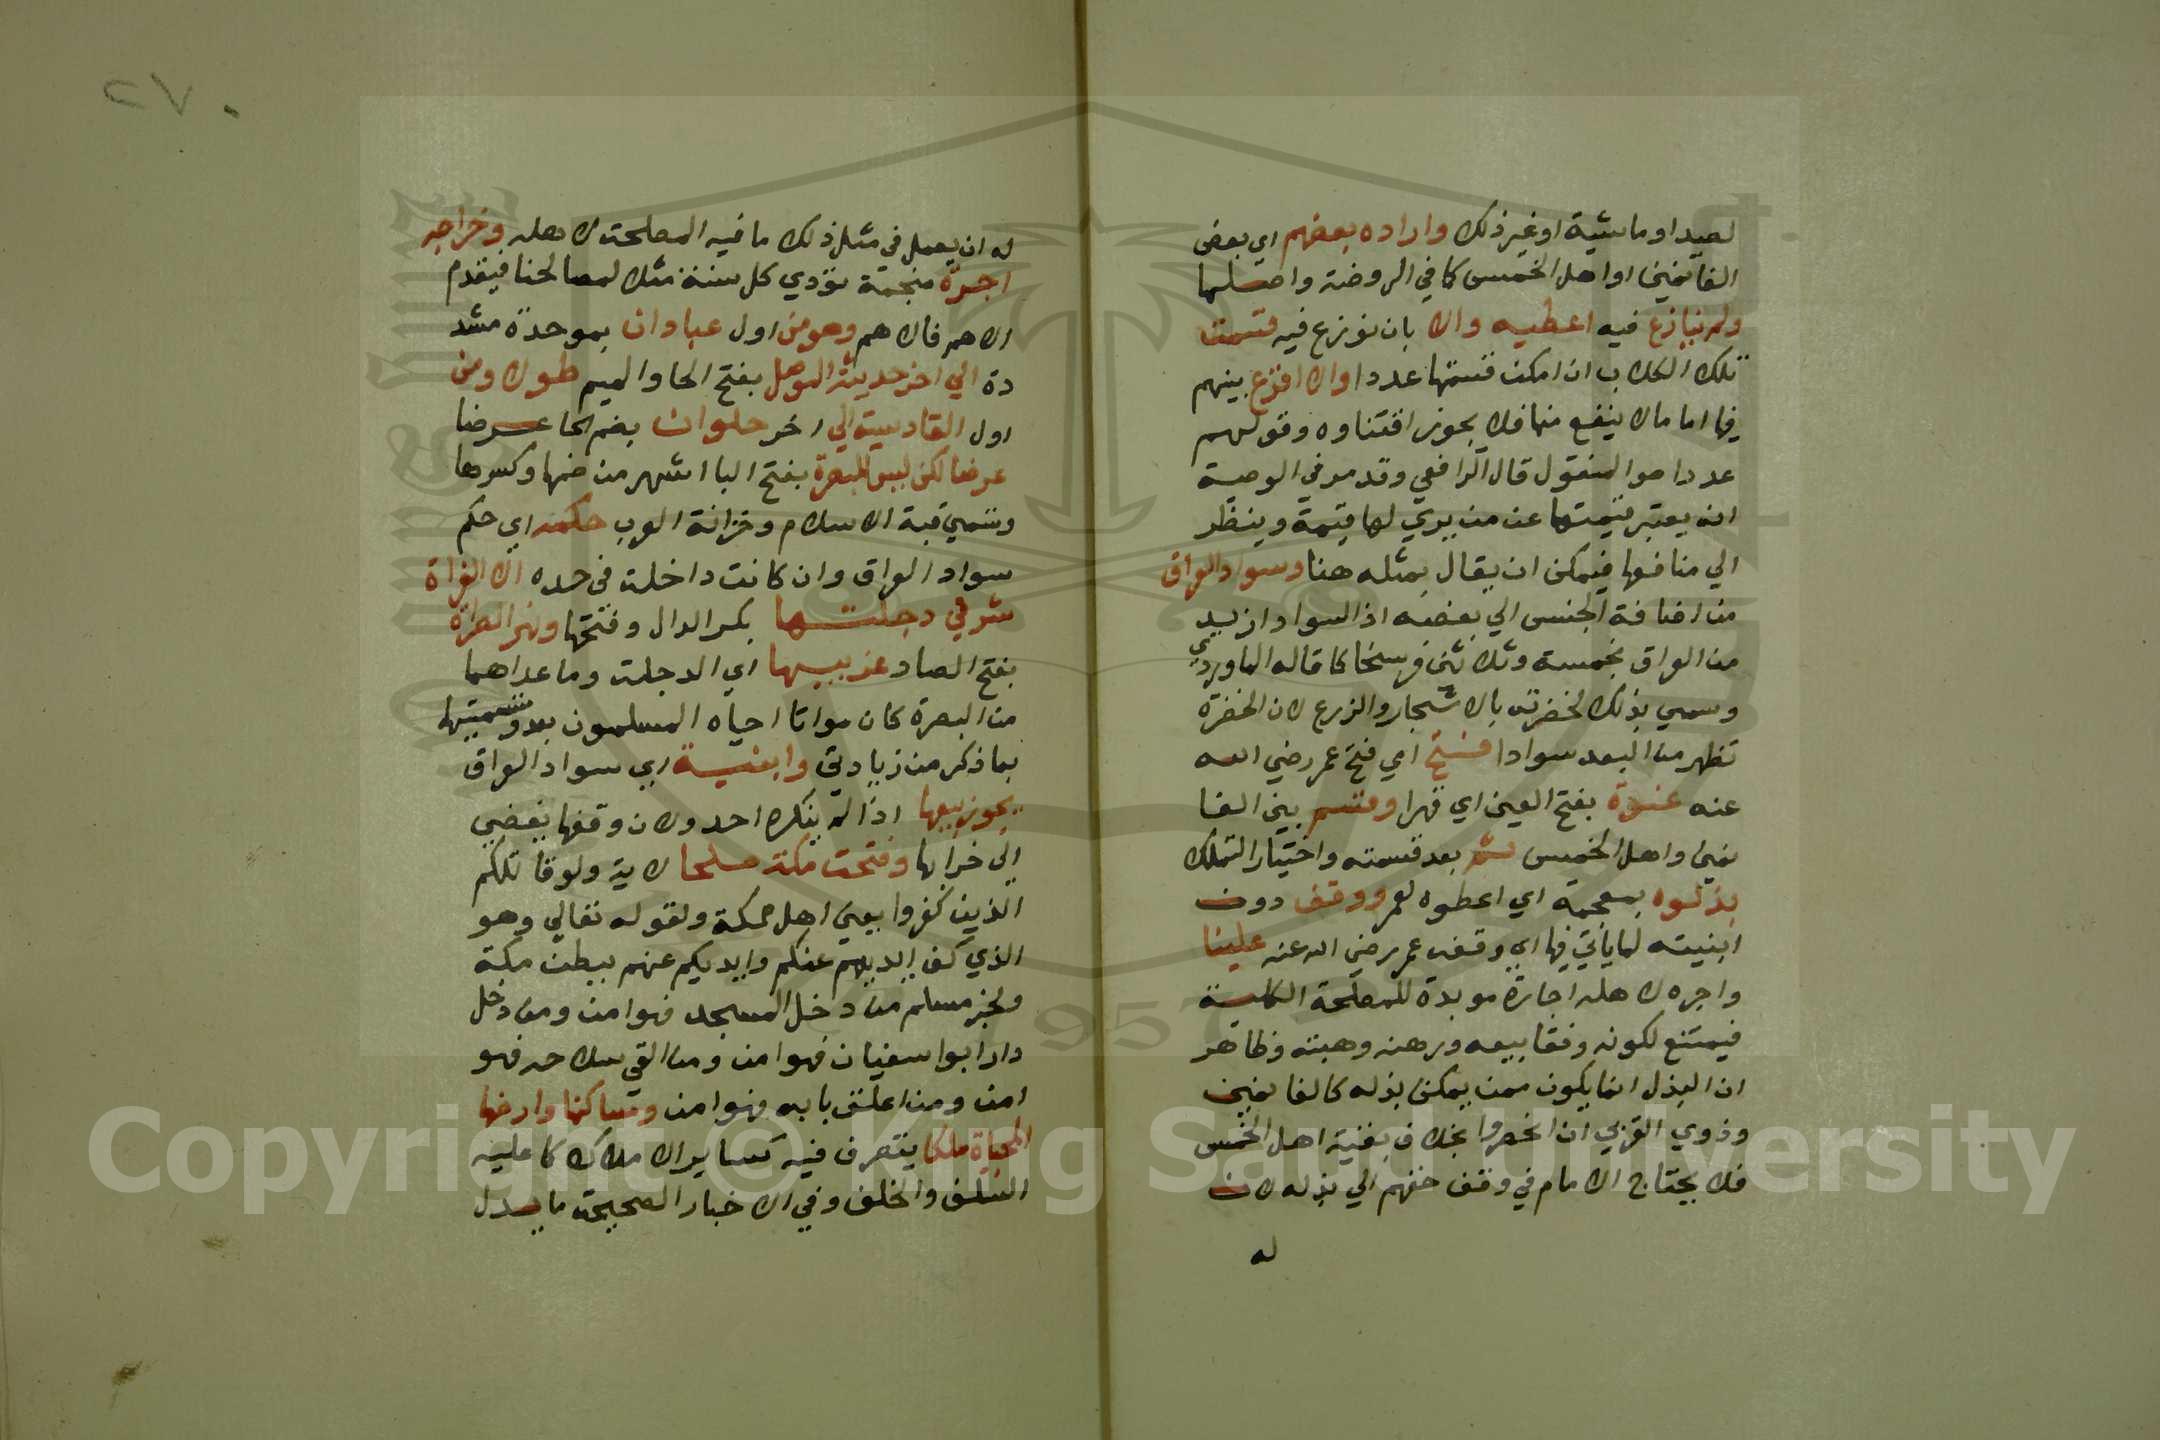 لصيد او ماشية او غير ذلك واراده بعضهم اي بعض
الغانمين او اهل الخمس كما في الروضة واصلها
ولم ينازع فيه اعطيه والا بان نوزع فيه قسمت
تلك الكلاب ان امكن قسمتها عددا والا اقرع بينهم
فيها اما ما لا ينفع منها فلا يجوز اقتناوه وقولهم
عددا هو المنقول قال الرافعي وقد مر في الوصية
انه يعتبر قيمتها عند من يري لها قيمة وينظر
الي منافعها فيمكن ان يقال بمثله هنا وسواد العراق
من اضافة الجنس الي بعضه اذ السواد ازيد
من العراق بخمسة وثلاثين فرسخا كما قاله الماوردي
وسمي بذلك لخضرته بالاشجار والزرع لان الخضرة
تظهر من البعد سوادا فتح اي فتح عمر رضي الله
عنه عنوة بفتح العين اي قهرا وقسم بين الغا
نمين واهل الخمس ثم بعد قسمته واختيار التملك
بذلوه بمعجمة اي اعطوه لعمر ووقف دون
ابنيته لما ياتي فيها اي وقفه عمر رضي الله عنه علينا
واجره لاهله اجارة موبدة للمصلحة الكلية
فيمتنع لكونه وقفا بيعه ورهنه وهبته وظاهر
ان البذل انما يكون ممن يمكن بذله كالغانمين
وذوي القربي ان انحصروا بخلاف بقية اهل الخمس
فلا يحتاج الامام في وقف حقهم الي بذله لان
له
٢٧٠
له ان يعمل في مثل ذلك ما فيه المصلحة لاهله وخراجه
اجرة منجمة تودي كل سنة مثلا لمصالحنا فيقدم
الاهم فالاهم وهو من اول عبادان بموحدة مشد
دة الي اخر حديثة الموصل بفتح الحا والميم طولا ومن
اول القادسية الي اخر حلوان بضم الحا عرضا
عرضا لكن ليس للبصرة بفتح البا اشهر من ضمها وكسرها
وتسمي قبة الاسلام وخزانة العرب حكمه اي حكم
سواد العراق وان كانت داخلة في حده الا الفراة
شرقي دجلتها بكسر الدال وفتحها ونهر الصراة
بفتح الصاد غربيها اي الدجلة وما عداهما
من البصرة كان مواتا احياه المسلمون بعد وتسميتها
بما ذكر من زيادتي وابنية اي سواد العراق
يجوز بيعها اذ لم ينكره احد ولان وقفها يفضي
الي خرابها وفتحت مكة صلحا لاية ولو قاتلكم
الذين كفروا يعني اهل مكة ولقوله تعالي وهو
الذي كف ايديهم عنكم وايديكم عنهم ببطن مكة
ولخبر مسلم من دخل المسجد فهو امن ومن دخل
دار ابو اسفيان فهو امن ومن القي سلاحه فهو
امن ومن اغلق بابه فهو امن ومساكنها وارضها
المحياة ملكا يتصرف فيه كساير الاملاك كما عليه
السلف والخلف وفي الاخبار الصحيحة ما يدل
Copyright © King Saud University
1957